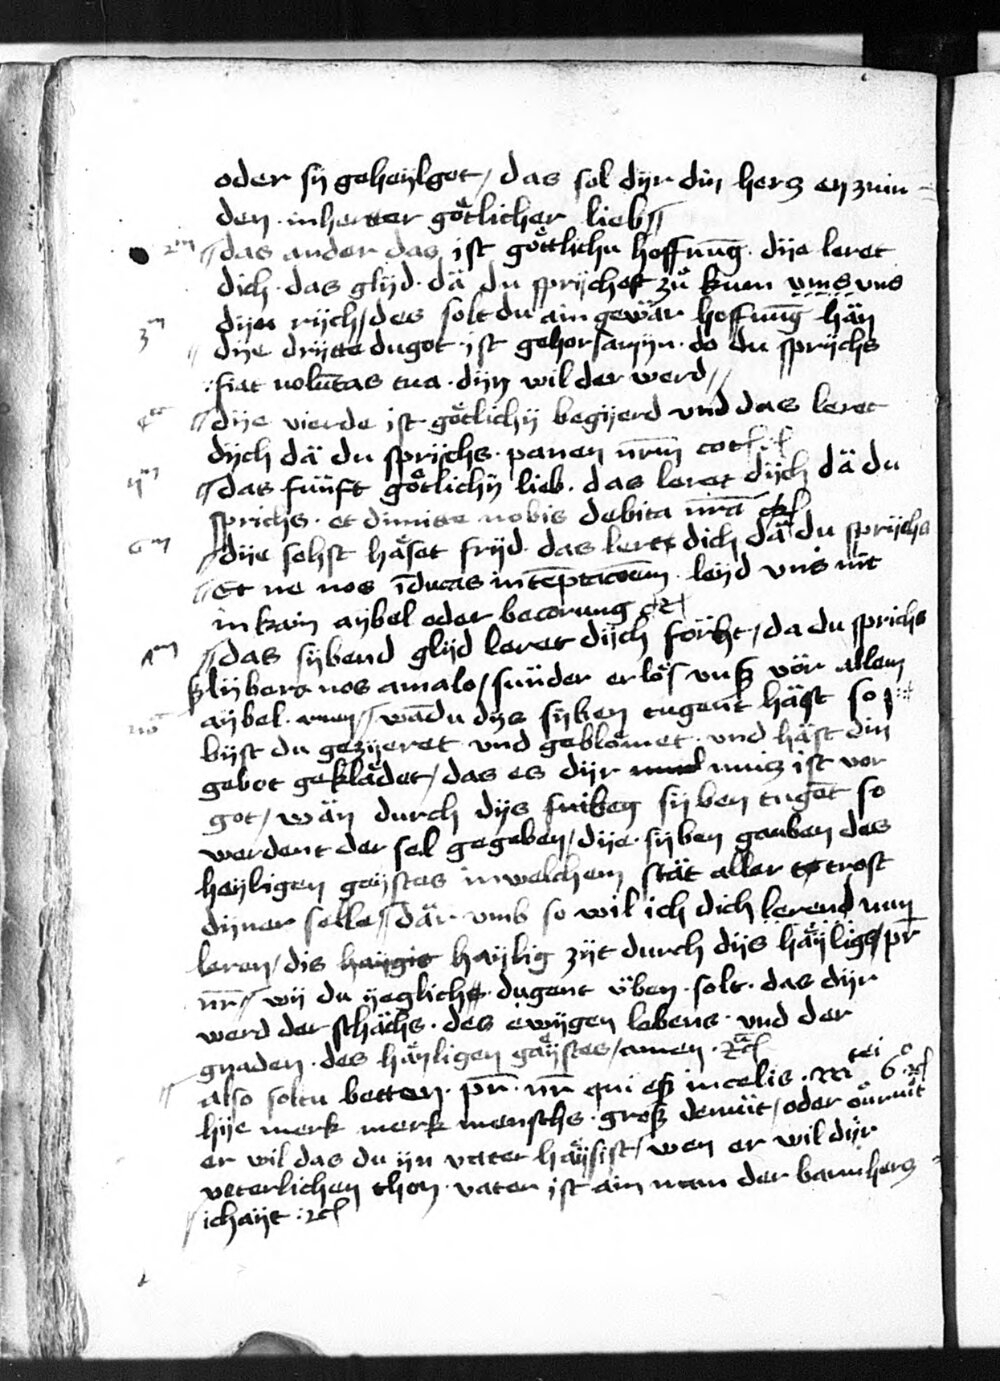 oder sy geheylget / das sol dyr din herz enzuin
den · in herter gőtlicher lieb //
2m // das ander das ist gőttlichu hoffnūg · dije leret
dich · das glyd · dä du sprychest zů kum vms vns
dijn rijch / des solt du ain gewär hoffnūg hän
3m // dije drytte dugot · ist gehorsamijn · do du sprichs
: fiat volūtas tua · dijn wil der werd //
4or // dije vierde ist gőtlichy begijerd vnd das leret
dijch dä du sprijchs · panen nr̄m cot
5m // das fünft gőtlichy lieb · das leret dijch dä du
sprichs · et dimitte nobis debita nr̄a
6m // dije sehst häset frijd · das leret dich dä du sprijchs
// Et ne nos īducas in tēptacōem · leyd vns nit
in kain aybel oder becorung
7m // das sybend glyd leret dijch forht / da du sprichs
lybera nos amalo / sunder erlős vnß vőr allem
aybel · amen // wādu dys syben tugent häst so
byst du gezyeret · vnd geblőmet · vnd häst din
gebot geklädet / das es dyr nucz ist vor
got / wän durch dys syben tugēt so
werdent der sel gegeben / dije · syben gauben des
heyligen geystes in welchem stät aller trost
dyner selle // där vmb so wil ich dich lerend nun
leren / dis haygis haylig zyt durch dys häylige / pr̄
nr̄ // wy du yegliche · dugent üben · solt · das dyr
werd der schächs · des ewygen lebens · vnd der
gnaden · des häyligen gäystes / amen ·
// also soltu betten · pr̄ · nr̄ qui es in celis · mtei 6o
hije merk merk menschs · groß demüt / oder
er wil das du yn vater häysist / wen er wil dyr
veterlichen thon · vater ist ain nam der barmherz
// ichayt :